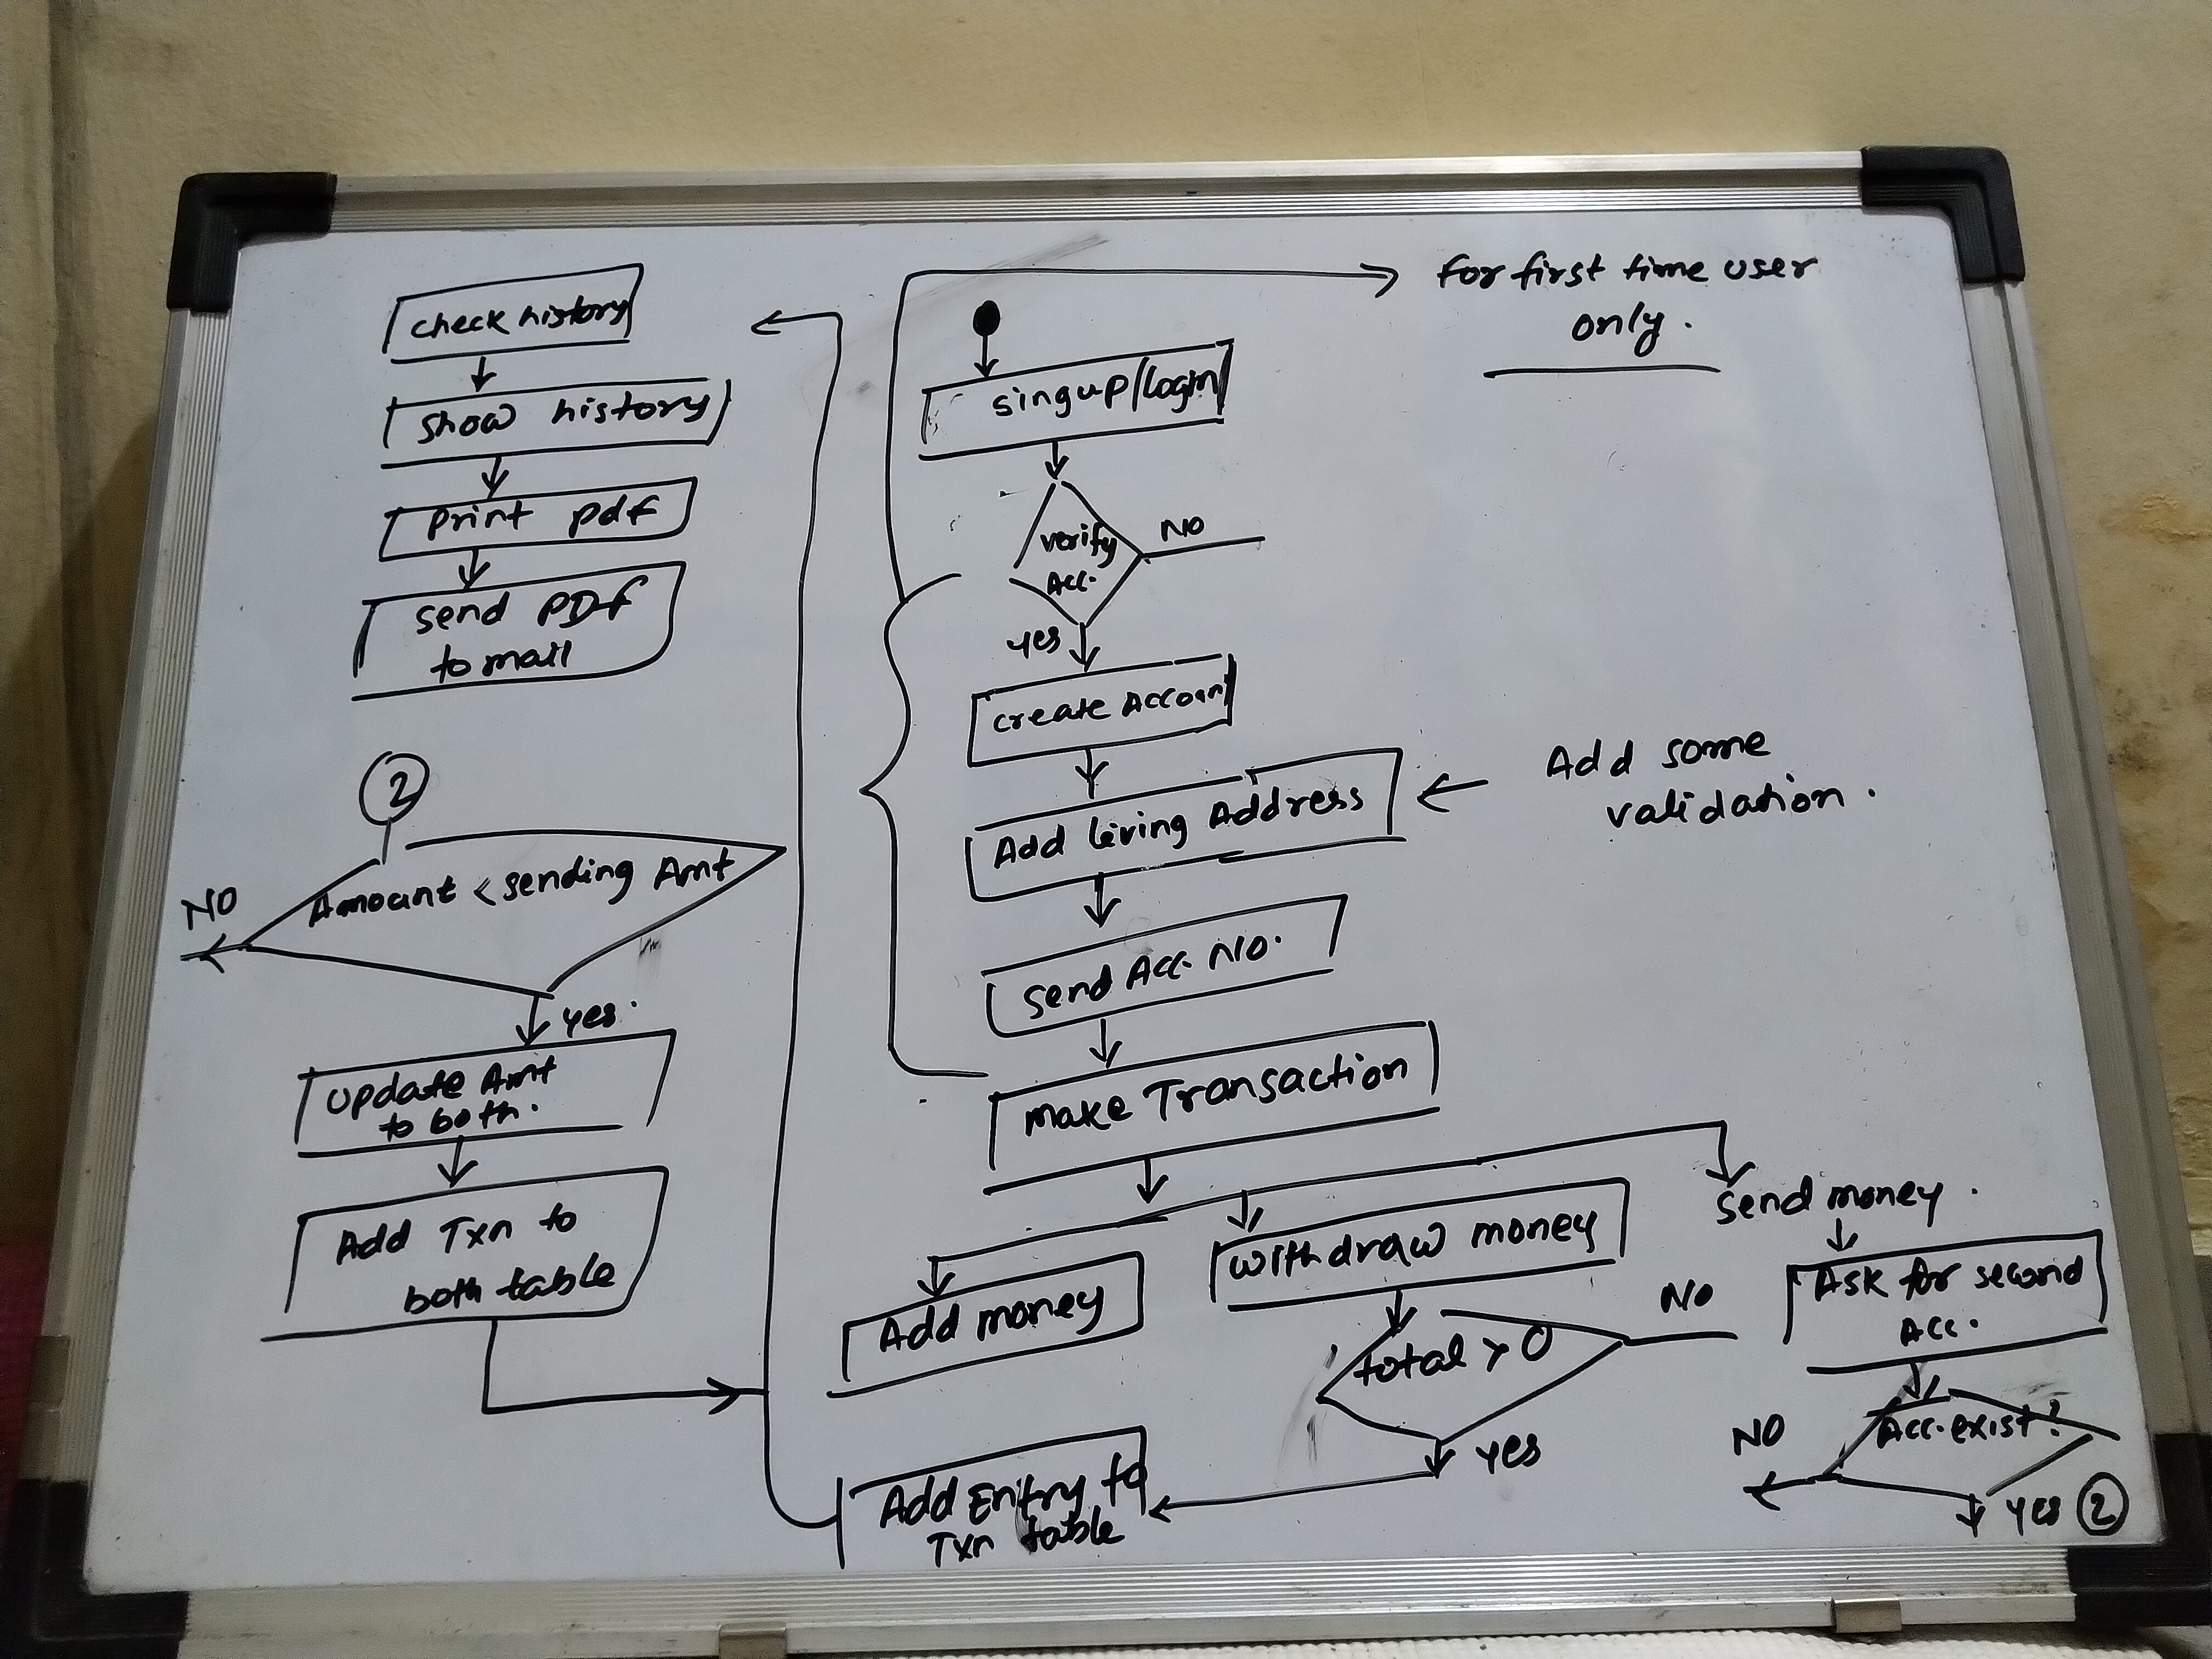 check history
show history
print pdf
send PDF
to mail
2
Amount < sending Amt
NO
yes.
update Amt
to both.
Add Txn to
both table
for first time user
only.
singup/Login
verify
Acc.
NO
yes
create Account
Add living Address
Add some
validation.
send Acc. No.
make Transaction
Add money
withdraw money
send money.
total > 0
NO
yes
Add Entry to
Txn table
Ask for second
Acc.
Acc. exist?
NO
yes 2